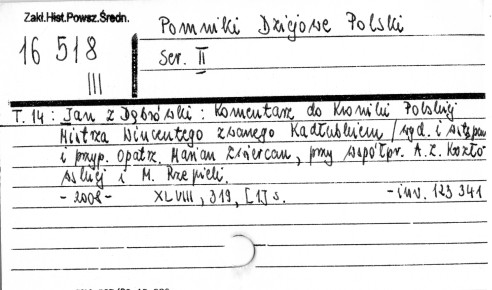 Zakł.Hist.Powsz.Średn.
Pomniki Dziejowe Polski
16 518
III
Ser. II
T. 14 : Jan z Dąbrówki : Komentarz do Kroniki Polskiej
Mistrza Wincentego zwanego Kadłubkiem / wyd. i wstępem
i przyp. opatrz. Marian Zwiercan, przy współpr. A. Z. Kozło
wskiej i M. Rzepieli.
- 2008 - XLVIII, 319, [1] s. - inv. 123 341